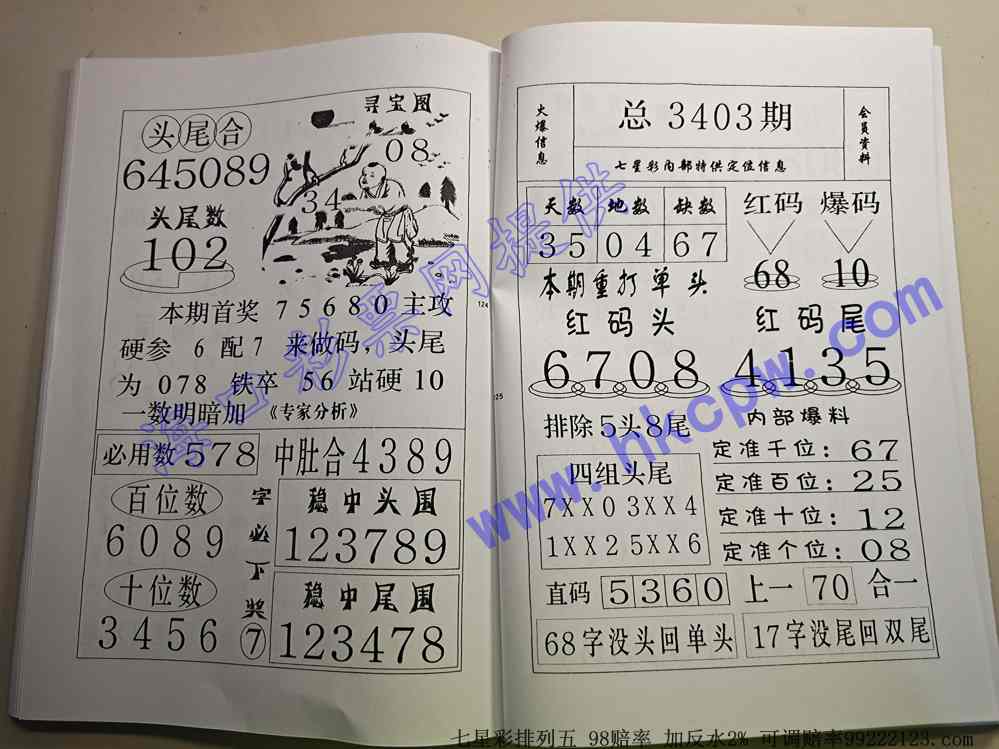 寻宝图
头尾合
645089
08
34
头尾数
102
本期首奖 75680主攻
硬参 6 配7 来做码，头尾
为 078 铁卒 56 站硬 10
一数明暗加 《专家分析》
必用数 578
中肚合4389
百位数
6089
十位数
3456
字必下奖⑦
稳中头围
123789
稳中尾围
123478
124
125
火爆信息
总3403期
七星彩内部特供定位信息
会员资料
天数 地数 缺数
35 04 67
红码 爆码
68 10
本期重打单头
红码头
6708
红码尾
4135
排除5头8尾
四组头尾
7XX0 3XX4
1XX2 5XX6
内部爆料
定准千位：67
定准百位：25
定准十位：12
定准个位：08
直码 5360 上一 70 合一
68字没头回单头
17字没尾回双尾
www.hkcpw.com
七星彩排列五 98赔率 加反水2% 可调赔率99222123.com